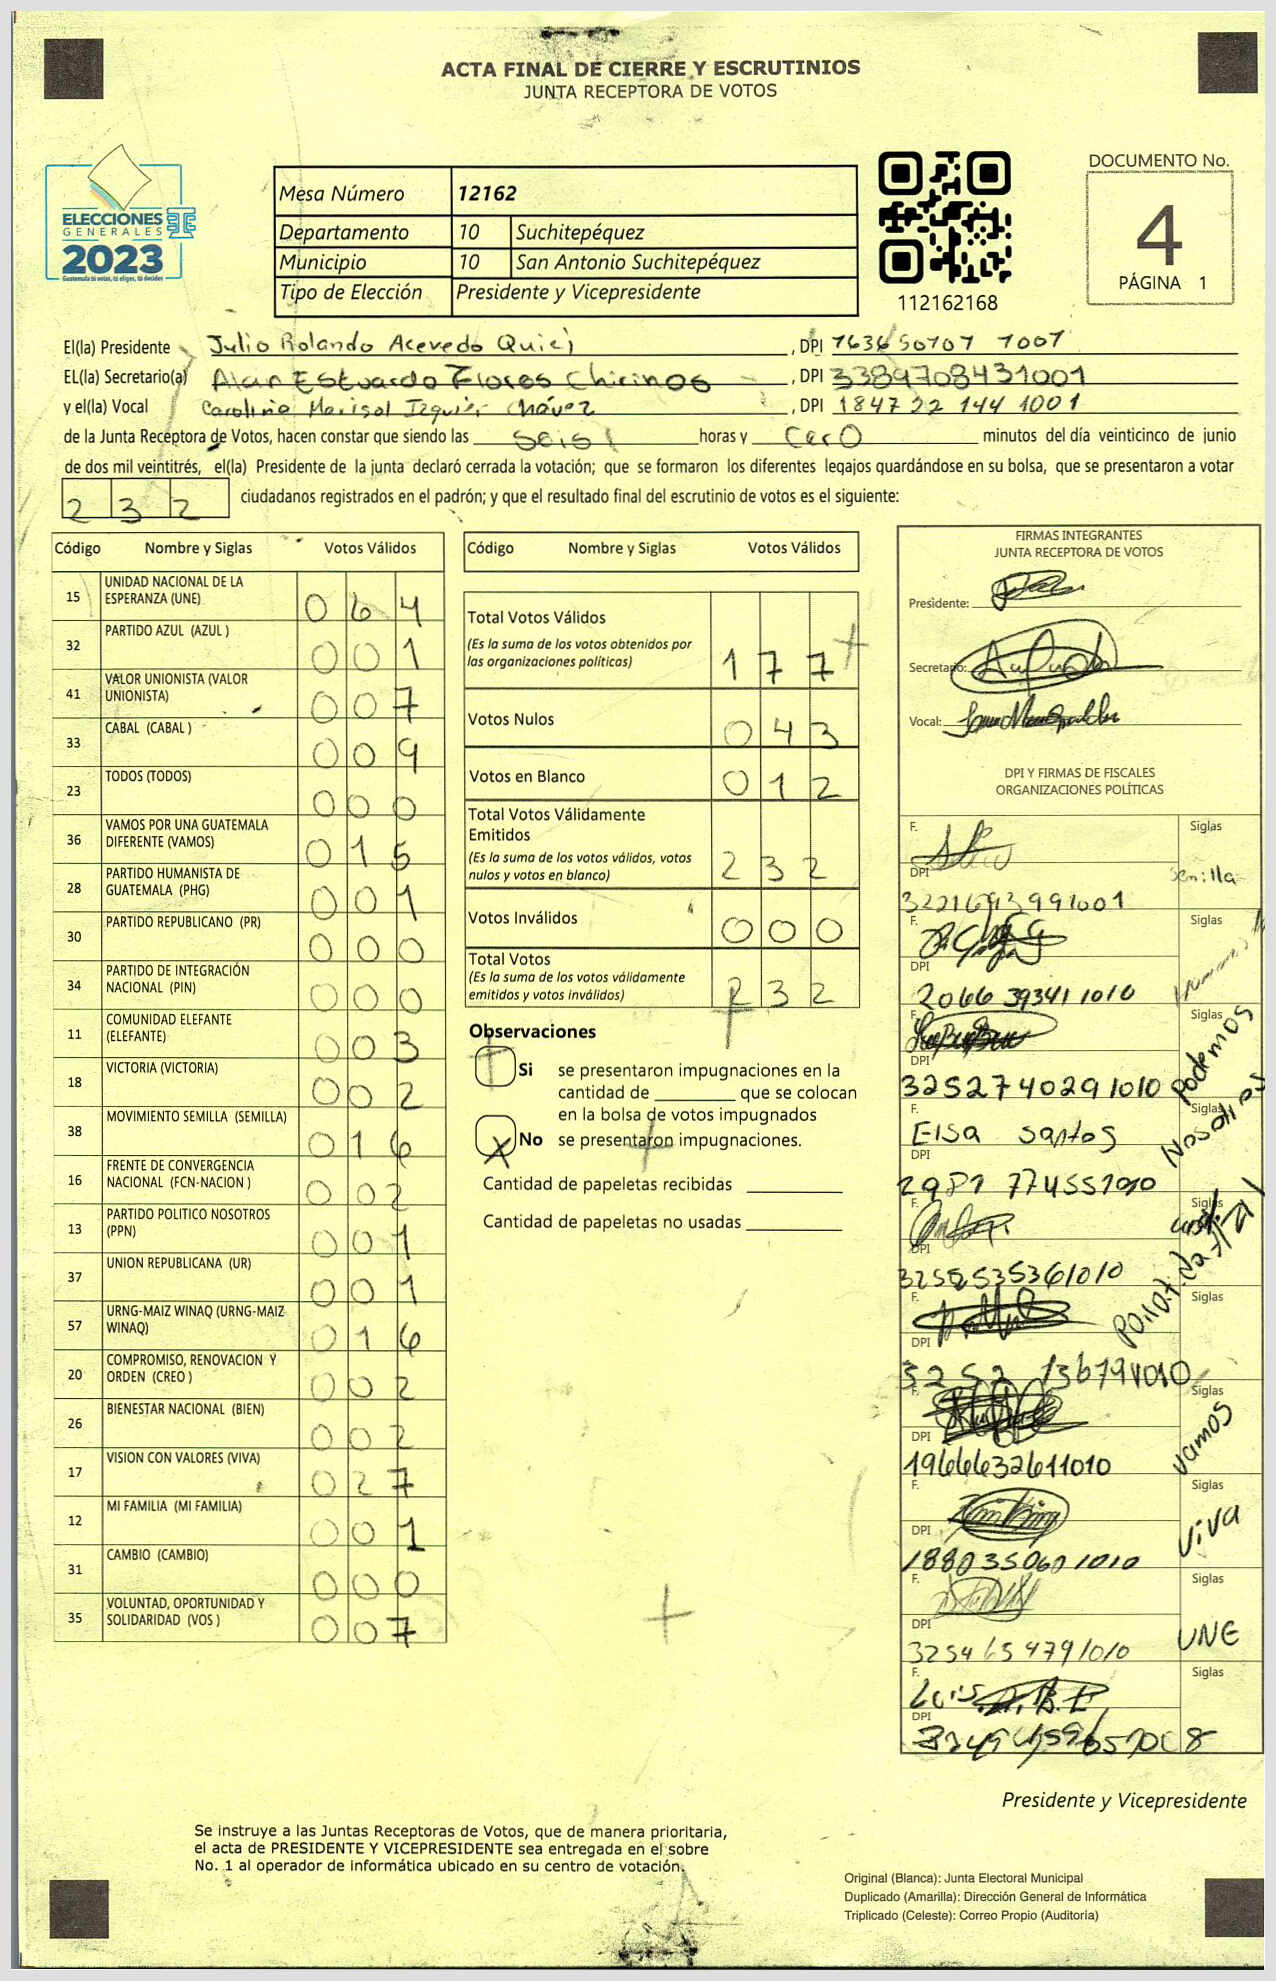 ACTA FINAL DE CIERRE Y ESCRUTINIOS
JUNTA RECEPTORA DE VOTOS
ELECCIONES
GENERALES
2023
Guatemala tú votas, tú eliges, tú decides
Mesa Número 12162
Departamento 10 Suchitepéquez
Municipio 10 San Antonio Suchitepéquez
Tipo de Elección Presidente y Vicepresidente
112162168
DOCUMENTO No.
4
PÁGINA 1
El(la) Presidente Julio Rolando Acevedo , DPI
EL(la) Secretario(a) Alan Estuardo Flores Chirinos , DPI 3389708431001
y el(la) Vocal Marisol Chávez , DPI 1847 22 144 1001
de la Junta Receptora de Votos, hacen constar que siendo las seis horas y cero minutos del día veinticinco de junio
de dos mil veintitrés, el(la) Presidente de la junta declaró cerrada la votación; que se formaron los diferentes legajos guardándose en su bolsa, que se presentaron a votar
232 ciudadanos registrados en el padrón; y que el resultado final del escrutinio de votos es el siguiente:
Código Nombre y Siglas Votos Válidos
15 UNIDAD NACIONAL DE LA ESPERANZA (UNE) 064
32 PARTIDO AZUL (AZUL ) 001
41 VALOR UNIONISTA (VALOR UNIONISTA) 007
33 CABAL (CABAL ) 009
23 TODOS (TODOS) 000
36 VAMOS POR UNA GUATEMALA DIFERENTE (VAMOS) 015
28 PARTIDO HUMANISTA DE GUATEMALA (PHG) 001
30 PARTIDO REPUBLICANO (PR) 000
34 PARTIDO DE INTEGRACIÓN NACIONAL (PIN) 000
11 COMUNIDAD ELEFANTE (ELEFANTE) 003
18 VICTORIA (VICTORIA) 002
38 MOVIMIENTO SEMILLA (SEMILLA) 016
16 FRENTE DE CONVERGENCIA NACIONAL (FCN-NACION ) 002
13 PARTIDO POLITICO NOSOTROS (PPN) 001
37 UNION REPUBLICANA (UR) 001
57 URNG-MAIZ WINAQ (URNG-MAIZ WINAQ) 016
20 COMPROMISO, RENOVACION Y ORDEN (CREO ) 002
26 BIENESTAR NACIONAL (BIEN) 002
17 VISION CON VALORES (VIVA) 027
12 MI FAMILIA (MI FAMILIA) 001
31 CAMBIO (CAMBIO) 000
35 VOLUNTAD, OPORTUNIDAD Y SOLIDARIDAD (VOS ) 007
Código Nombre y Siglas Votos Válidos
Total Votos Válidos
(Es la suma de los votos obtenidos por
las organizaciones políticas) 177
Votos Nulos 043
Votos en Blanco 012
Total Votos Válidamente
Emitidos
(Es la suma de los votos válidos, votos
nulos y votos en blanco) 232
Votos Inválidos 000
Total Votos
(Es la suma de los votos válidamente
emitidos y votos inválidos) 232
Observaciones
Si se presentaron impugnaciones en la
cantidad de ________ que se colocan
en la bolsa de votos impugnados
X No se presentaron impugnaciones.
Cantidad de papeletas recibidas
Cantidad de papeletas no usadas
FIRMAS INTEGRANTES
JUNTA RECEPTORA DE VOTOS
Presidente:
Secretario:
Vocal:
DPI Y FIRMAS DE FISCALES
ORGANIZACIONES POLÍTICAS
F. Siglas
DPI Semilla
3221693991001
F. Siglas
DPI
2066 39341 1010
F. Siglas
DPI Podemos
3252740291010
F. Elsa Santos Siglas
DPI Nosotros
2987 774551010
F. Siglas
DPI
3252535361010
F. Siglas
DPI
F. Siglas
DPI vamos
1966632611010
F. Siglas
DPI viva
1880350601010
F. Siglas
DPI UNE
3254654791010
F. Luis Siglas
DPI
Presidente y Vicepresidente
Se instruye a las Juntas Receptoras de Votos, que de manera prioritaria,
el acta de PRESIDENTE Y VICEPRESIDENTE sea entregada en el sobre
No. 1 al operador de informática ubicado en su centro de votación.
Original (Blanca): Junta Electoral Municipal
Duplicado (Amarilla): Dirección General de Informática
Triplicado (Celeste): Correo Propio (Auditoría)